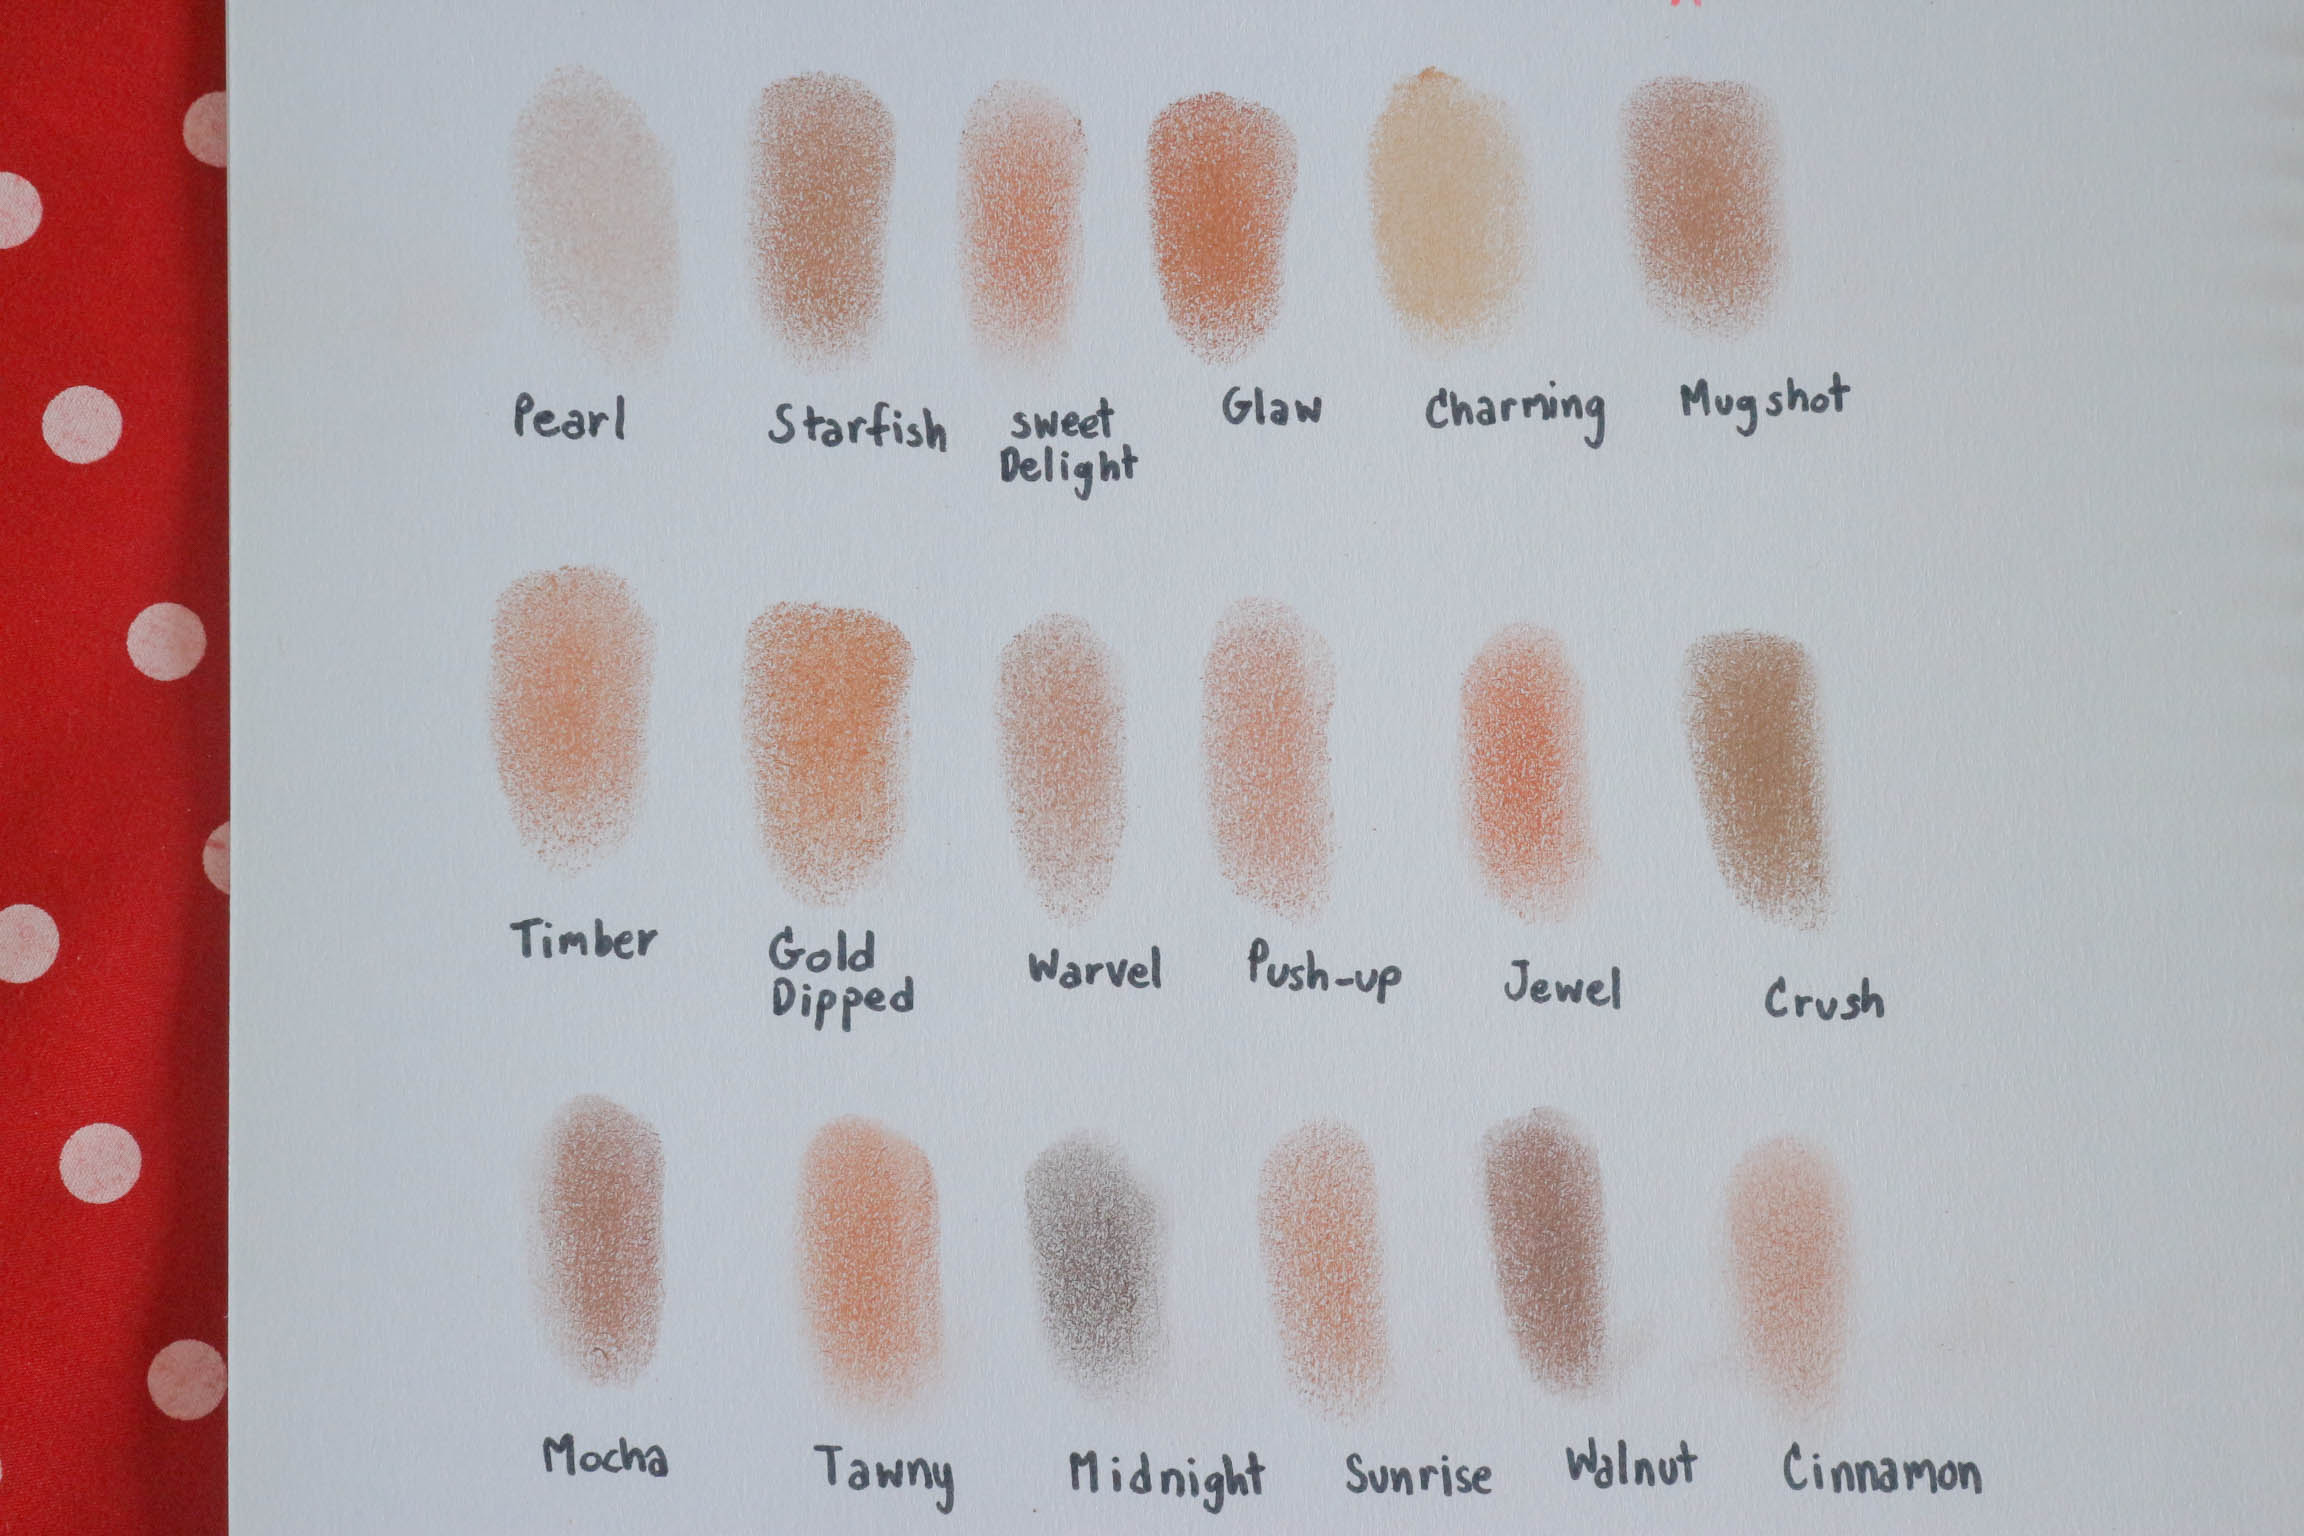 Pearl Starfish sweet Glaw Charming Mugshot
Delight
Timber Gold Warvel Push-up Jewel Crush
Dipped
Mocha Tawny Midnight Sunrise Walnut Cinnamon